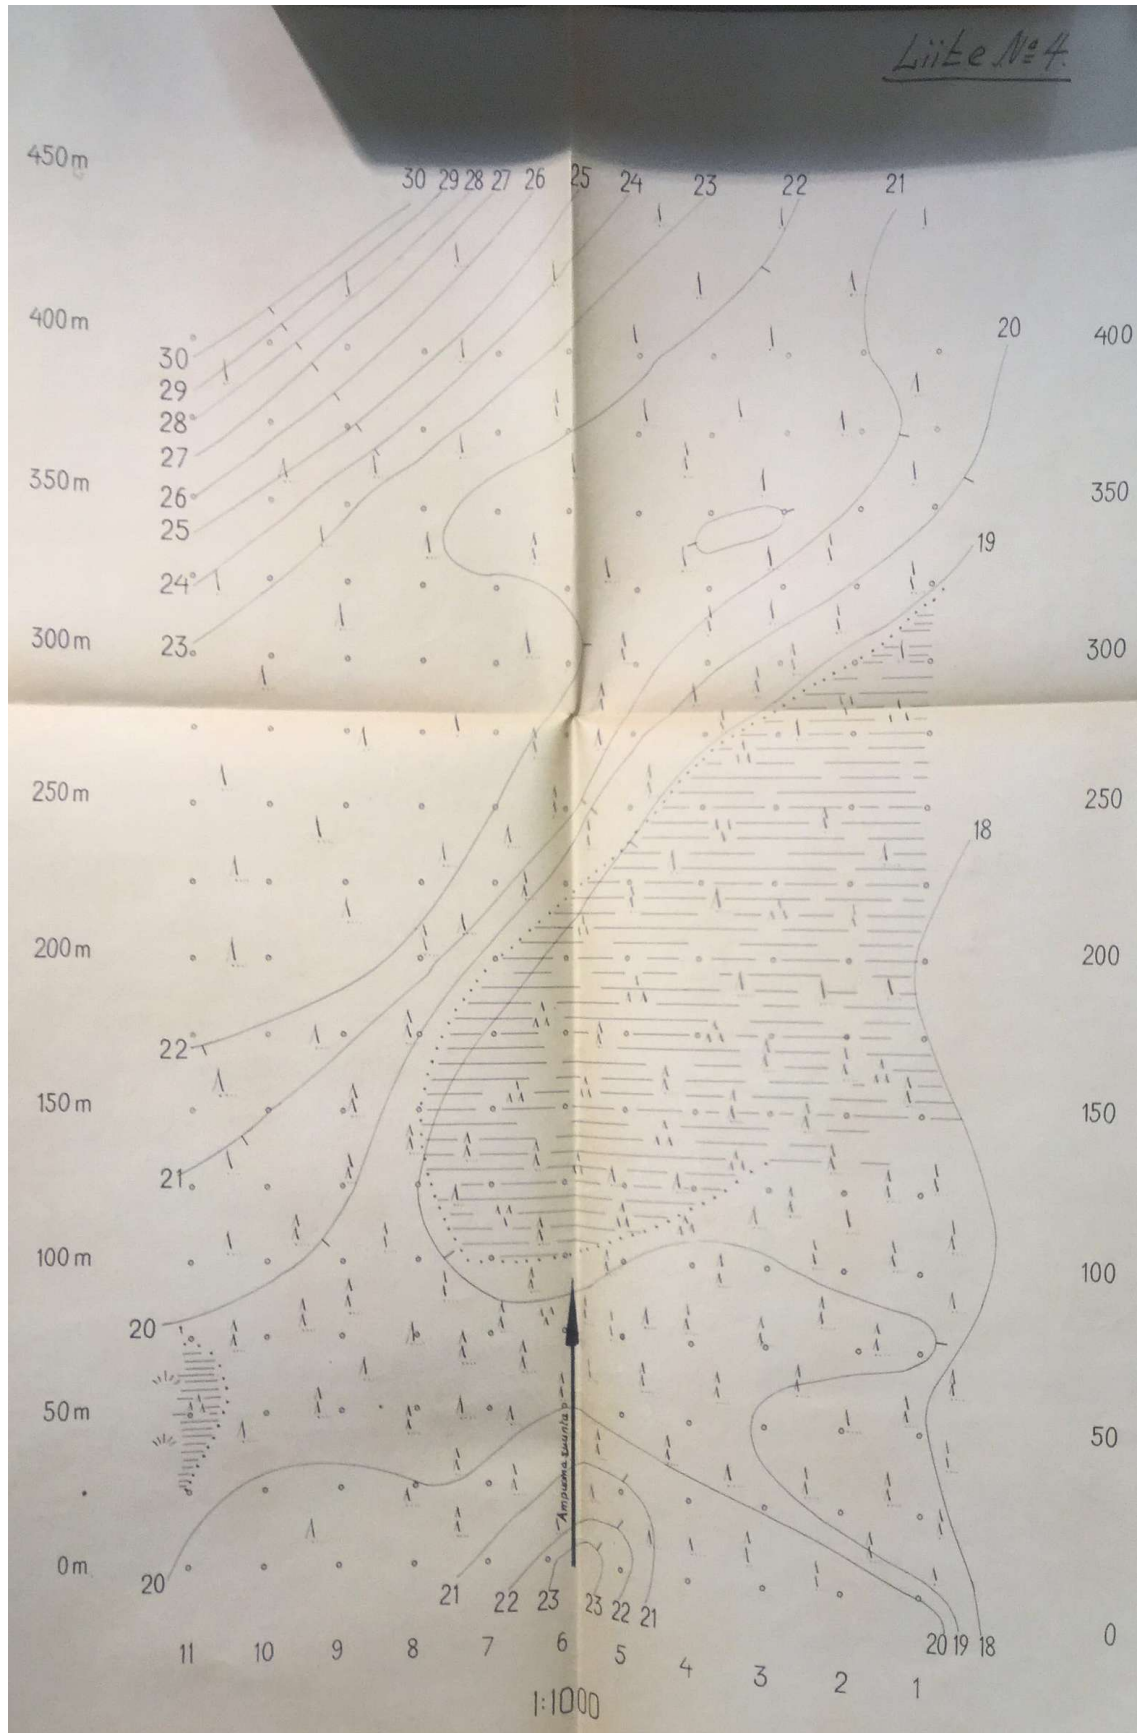 Liite № 4.
450m
30 29 28 27 26 25 24 23 22 21
400m
20
400
30
29
28
27
26
25
24
23
350m
350
19
300m
300
250m
250
18
200m
200
22
150m
150
21
100m
100
20
50m
50
"Ampumasuunta"
0m
20
21 22 23 23 22 21
20 19 18
0
11 10 9 8 7 6 5 4 3 2 1
1:1000